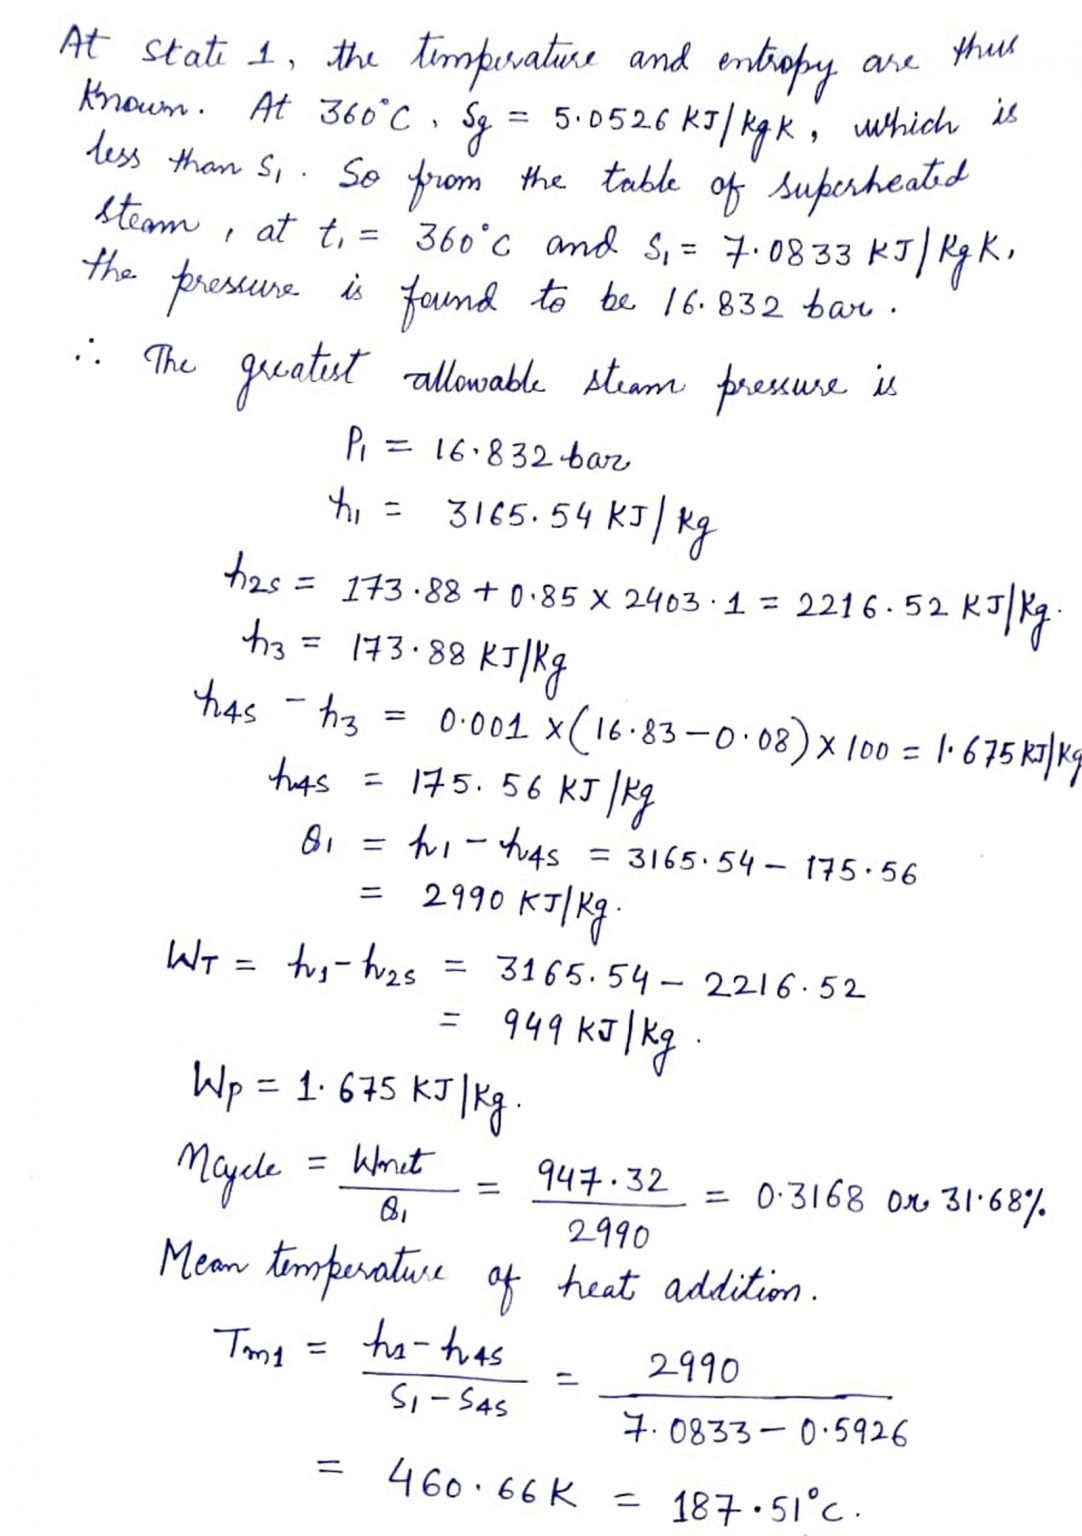 At state 1, the temperature and entropy are thus
known. At 360°C, Sg = 5.0526 KJ/kgK, which is
less than S₁. So from the table of superheated
steam, at t₁ = 360°C and S₁ = 7.0833 KJ/KgK,
the pressure is found to be 16.832 bar.
∴ The greatest allowable steam pressure is
P₁ = 16.832 bar
h₁ = 3165.54 KJ/kg
h2s = 173.88 + 0.85 × 2403.1 = 2216.52 KJ/Kg.
h3 = 173.88 KJ/Kg
h4s - h3 = 0.001 × (16.83 - 0.08) × 100 = 1.675 KJ/Kg
h4s = 175.56 KJ/Kg
Q₁ = h₁ - h4s = 3165.54 - 175.56
= 2990 KJ/Kg.
WT = h₁ - h2s = 3165.54 - 2216.52
= 949 KJ/Kg.
Wp = 1.675 KJ/Kg.
ηcycle = Wnet/Q₁ = 947.32/2990 = 0.3168 or 31.68%
Mean temperature of heat addition.
Tm1 = (h1 - h4s)/(S₁ - S4s) = 2990/(7.0833 - 0.5926)
= 460.66K = 187.51°c.